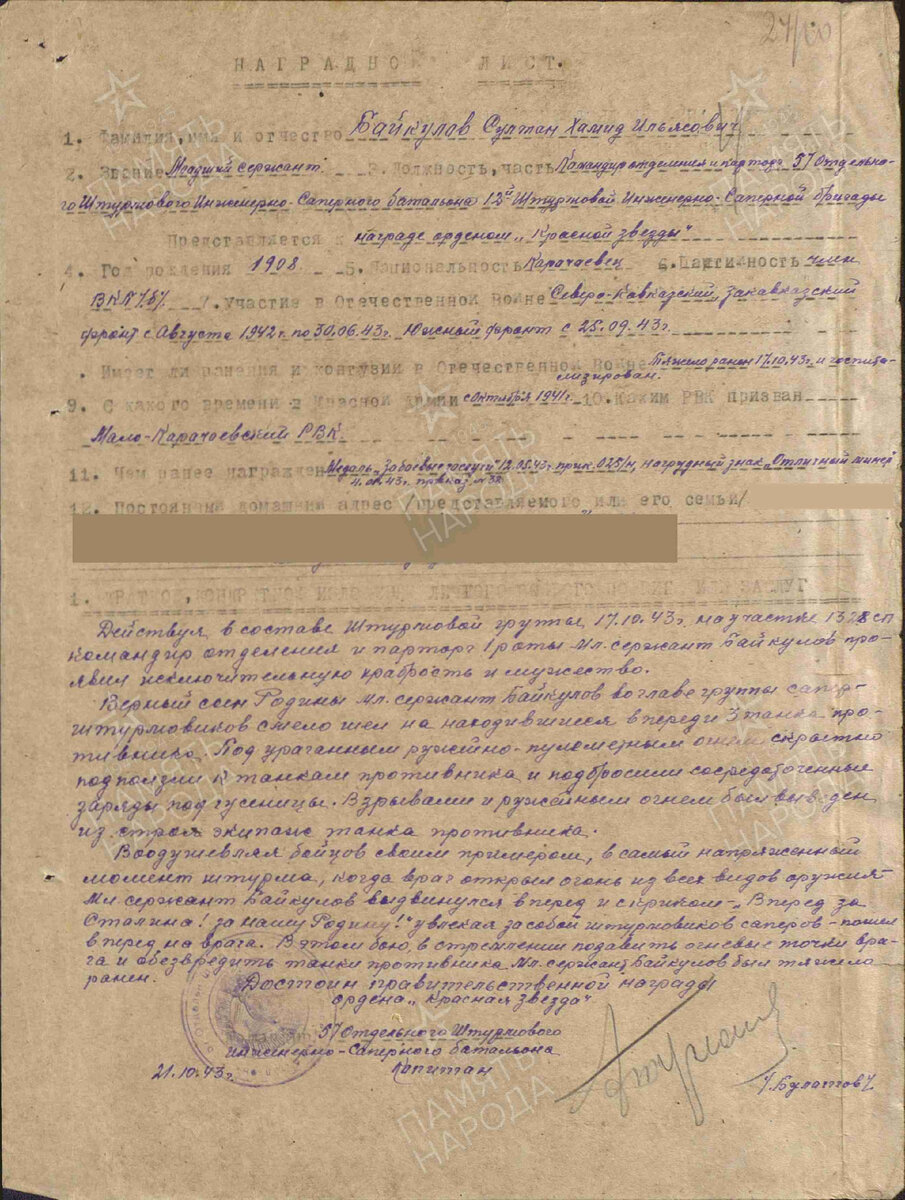 24/100
НАГРАДНОЙ ЛИСТ.
1. Фамилия, имя и отчество Байкулов Султан Хамид Ильясович
2. Звание Младший сержант 3. Должность, часть Командир отделения и парторг 57 Отдельно-
го Штурмового Инженерно-Саперного батальона 12й Штурмовой Инженерно-Саперной бригады
Представляется к награде орденом „Красной звезды"
4. Год рождения 1908 5. Национальность Карачаевец 6. Партийность член
ВКП/б/ 7. Участие в Отечественной Войне Северо-Кавказский, Закавказский
фронт с Августа 1942 г. по 30.06.43г. Южный фронт с 25.09.43г.
. Имеет ли ранения и контузии в Отечественной Войне Тяжело ранен 17.10.43г. и госпита-
лизирован.
9. С какого времени в Красной Армии с октября 1941 г. 10. Каким РВК призван
Мало-Карачаевский РВК
11. Чем ранее награжден Медаль „За боевые заслуги" 12.05.43г. прик. 025/н, нагрудный знак „Отличный минер"
прик��з № 38
12. Постоянный домашний адрес /представляемого или его семьи/
1. КРАТКОЕ, КОНКРЕТНОЕ ИЗЛОЖЕНИЕ ЛИЧНОГО БОЕВОГО ПОДВИГА ИЛИ ЗАСЛУГ
Действуя в составе штурмовой группы 17.10.43г. на участке 1328 сп
командир отделения и парторг 1 роты мл. сержант Байкулов про-
явил исключительную храбрость и мужество.
Верный сын Родины мл. сержант Байкулов во главе группы сапер-
штурмовиков смело шел на находившиеся впереди 3 танка про-
тивника. Под ураганным ружейно-пулеметным огнем скрытно
подползли к танкам противника и подбросили сосредоточенные
заряды под гусеницы. Взрывами и ружейным огнем был выведен
из строя экипаж танка противника.
Воодушевляя бойцов своим примером, в самый напряженный
момент штурма, когда враг открыл огонь из всех видов оружия
Мл сержант Байкулов выдвинулся вперед и с криком – „Вперед за
Сталина! за нашу Родину!" увлекая за собой штурмовиков саперов – пошел
вперед на врага. В этом бою, в стремлении подавить огневые точки вра-
га и обезвредить танки противника мл. сержант Байкулов был тяжело
ранен.
Достоин правительственной награды
ордена „Красная звезда"
57 Отдельного Штурмового
инженерно-Саперного батальона
21.10.43г. Капитан /Булатов/
ПАМЯТЬ НАРОДА